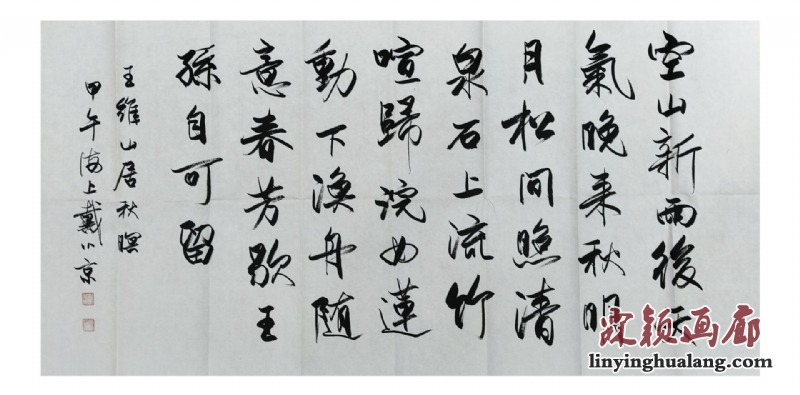 空山新雨後天
氣晚来秋明
月松间照清
泉石上流竹
喧歸浣女蓮
動下漁舟随
意春芳歇王
孫自可留
王維山居秋暝
甲午海上戴小京
霖颖画廊
linyinghualang.com